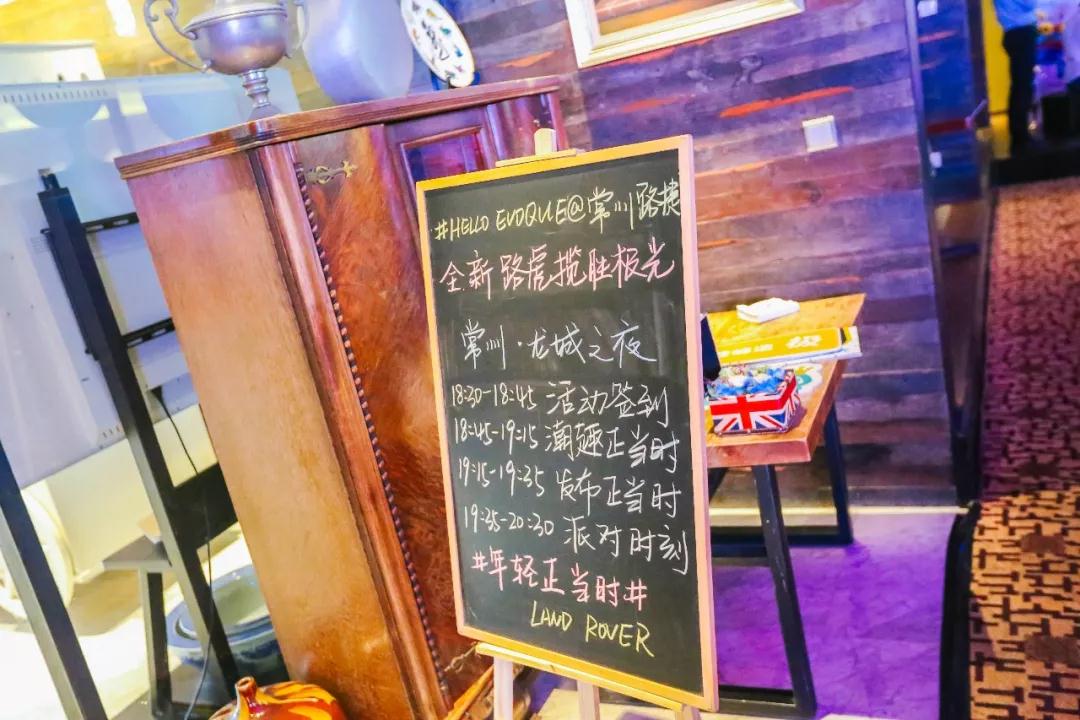 #HELLO EVOQUE@常州路捷
全新路虎揽胜极光
常州·龙城之夜
18:30-18:45 活动签到
18:45-19:15 潮趣正当时
19:15-19:35 发布正当时
19:35-20:30 派对时刻
#年轻正当时#
LAND ROVER